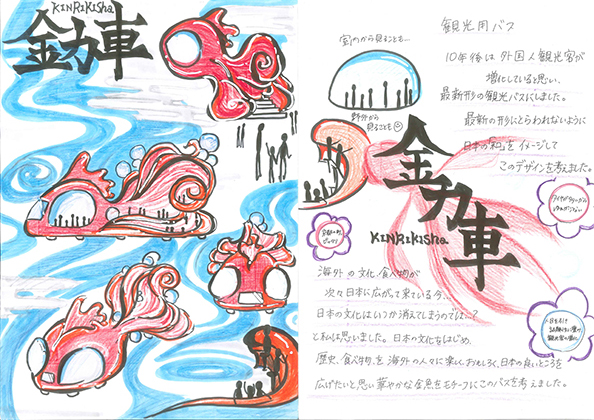 KINRIKISha
金力車
観光用バス
室内から見ることも…
10年後は外国人観光客が
増化していると思い、
最新形の観光バスにしました。
野外から
見ることも
最新の形にとらわれないように
日本の「和」をイメージして
このデザインを考えました。
金力車
KINRIKISha
海外の文化、食べ物が
次々日本に広がって来ている今、
日本の文化はいつか消えてしまうのでは…?
と私は思いました。日本の文化をはじめ、
歴史、食べ物、を海外の人々に楽しくおもしろく、日本の良いところを
広げたいと思い華やかな金魚をモチーフにこのバスを考えました。